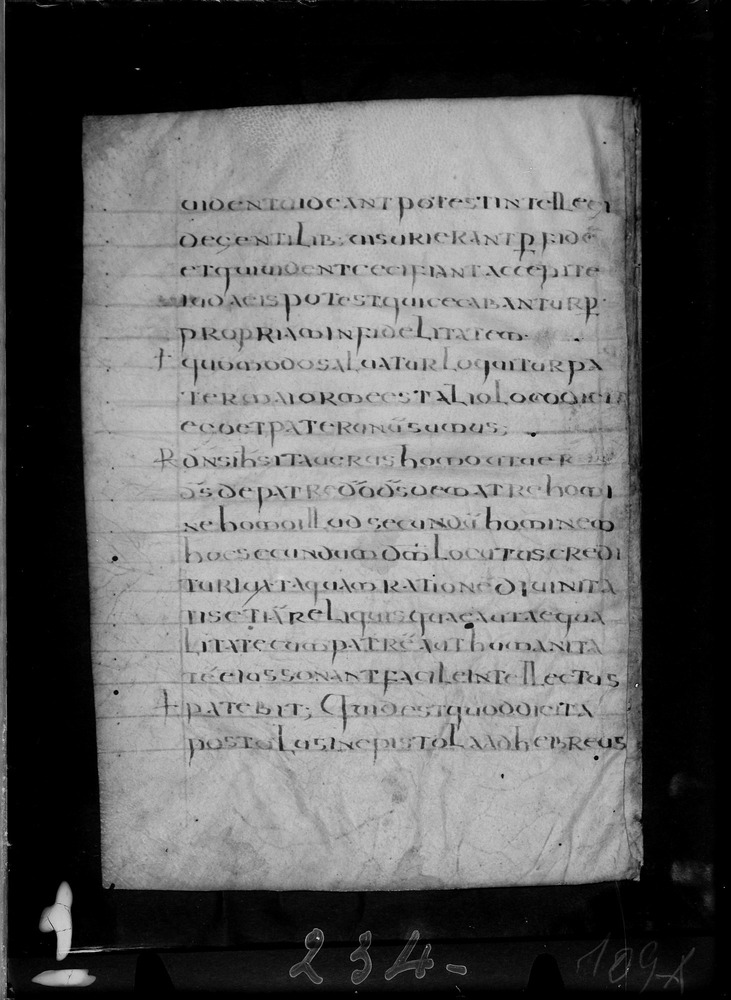 uident uideant potest intellegi
de gentilib; uisuri erant p fidē
et qui uident ceci fiant accepi te
iudaeis potest qui cecabantur p
propriam infidelitatem
quomodo saluatur loquitur pa
ter maior me est alio loco dicit
ego et pater unū sumus;
R dns ihs ita uerus homo uter
ds de patre dō ds de matre homi
ne homo illud secundū hominem
hoc secundum dm̄ locutus credi
tur iuxta quam ratione diuinita
tis etiā reliquis quae aut aequa
litate cum patrē aut humanita
tē eius sonant facile intellectus
patebit; Quid est quod dicit a
postolus in epistola ad hebreus
234-
1894